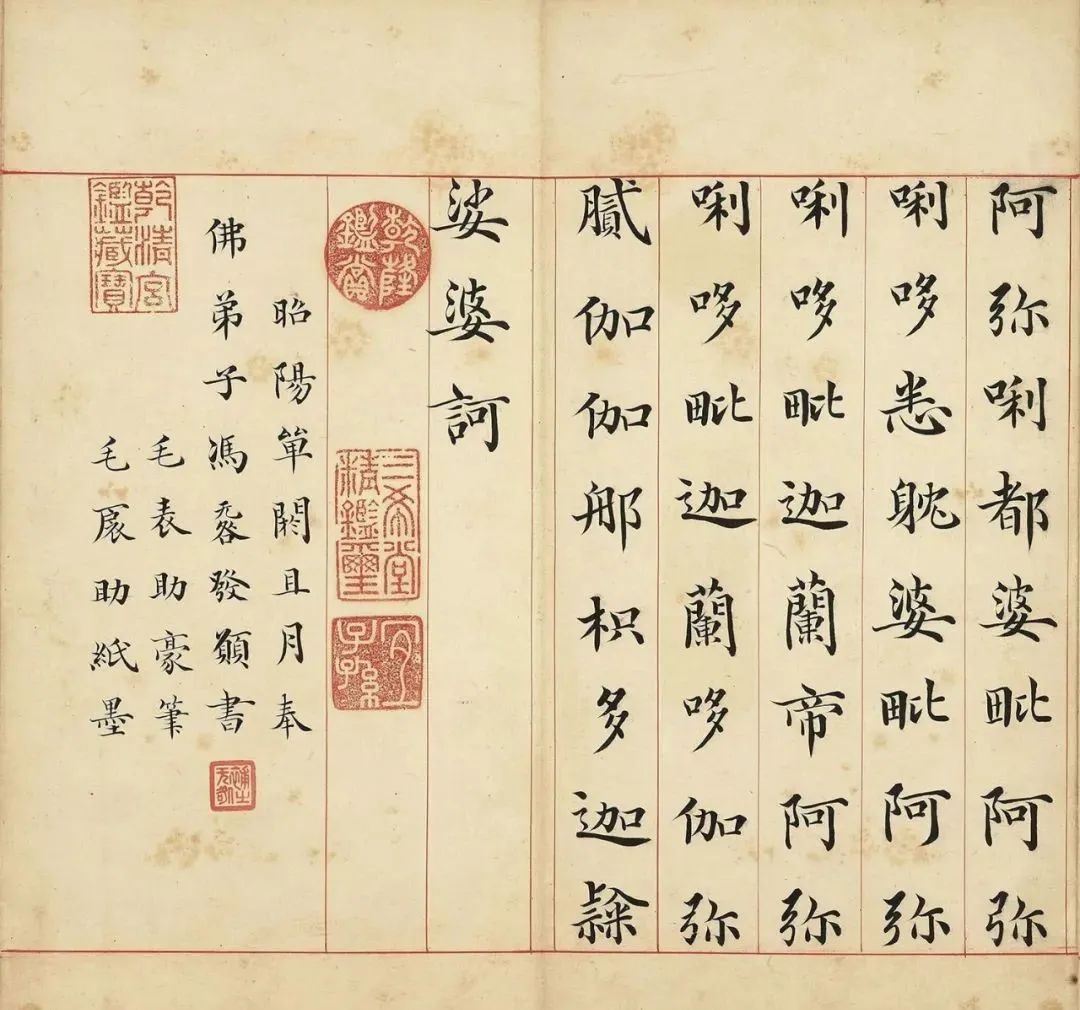 阿弥唎都婆毗阿弥
唎哆悉躭婆毗阿弥
唎哆毗迦蘭帝阿弥
唎哆毗迦蘭哆伽弥
膩伽伽那枳多迦隸
娑婆訶
乾隆鑑賞
三希堂精鑑璽
宜子孫
昭陽單閼且月奉
佛弟子馮發願書
毛表助豪筆
毛扆助紙墨
乾清宮鑑藏寶